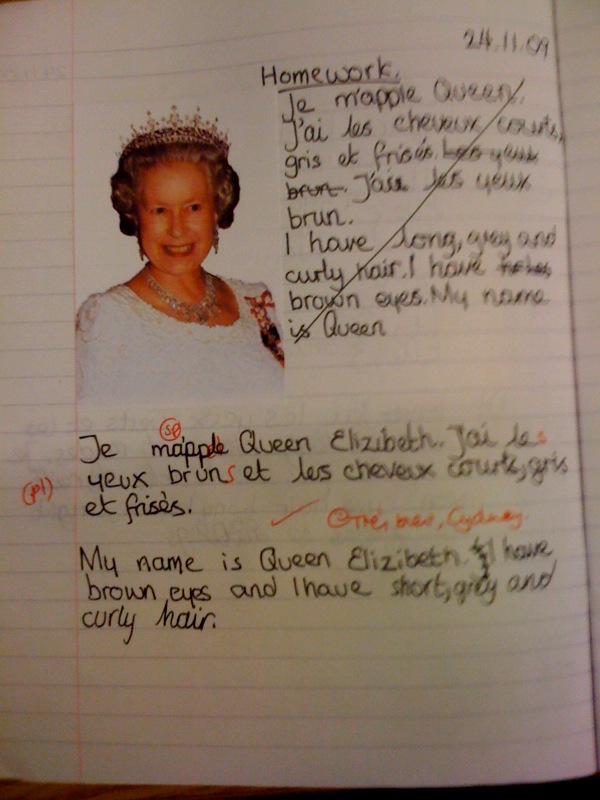 24.11.09
Homework.
Je m'apple Queen.
J'ai les cheveux courts,
gris et frisés. Les yeux
brun. J'ais les yeux
brun.
I have long, grey and
curly hair. I have
brown eyes. My name
is Queen
sp
Je m'apple Queen Elizibeth. J'ai les
yeux bruns et les cheveux courts, gris
(pl)
et frisés.
Très bien, Cydney.
My name is Queen Elizibeth. I have
brown eyes and I have short, grey and
curly hair.